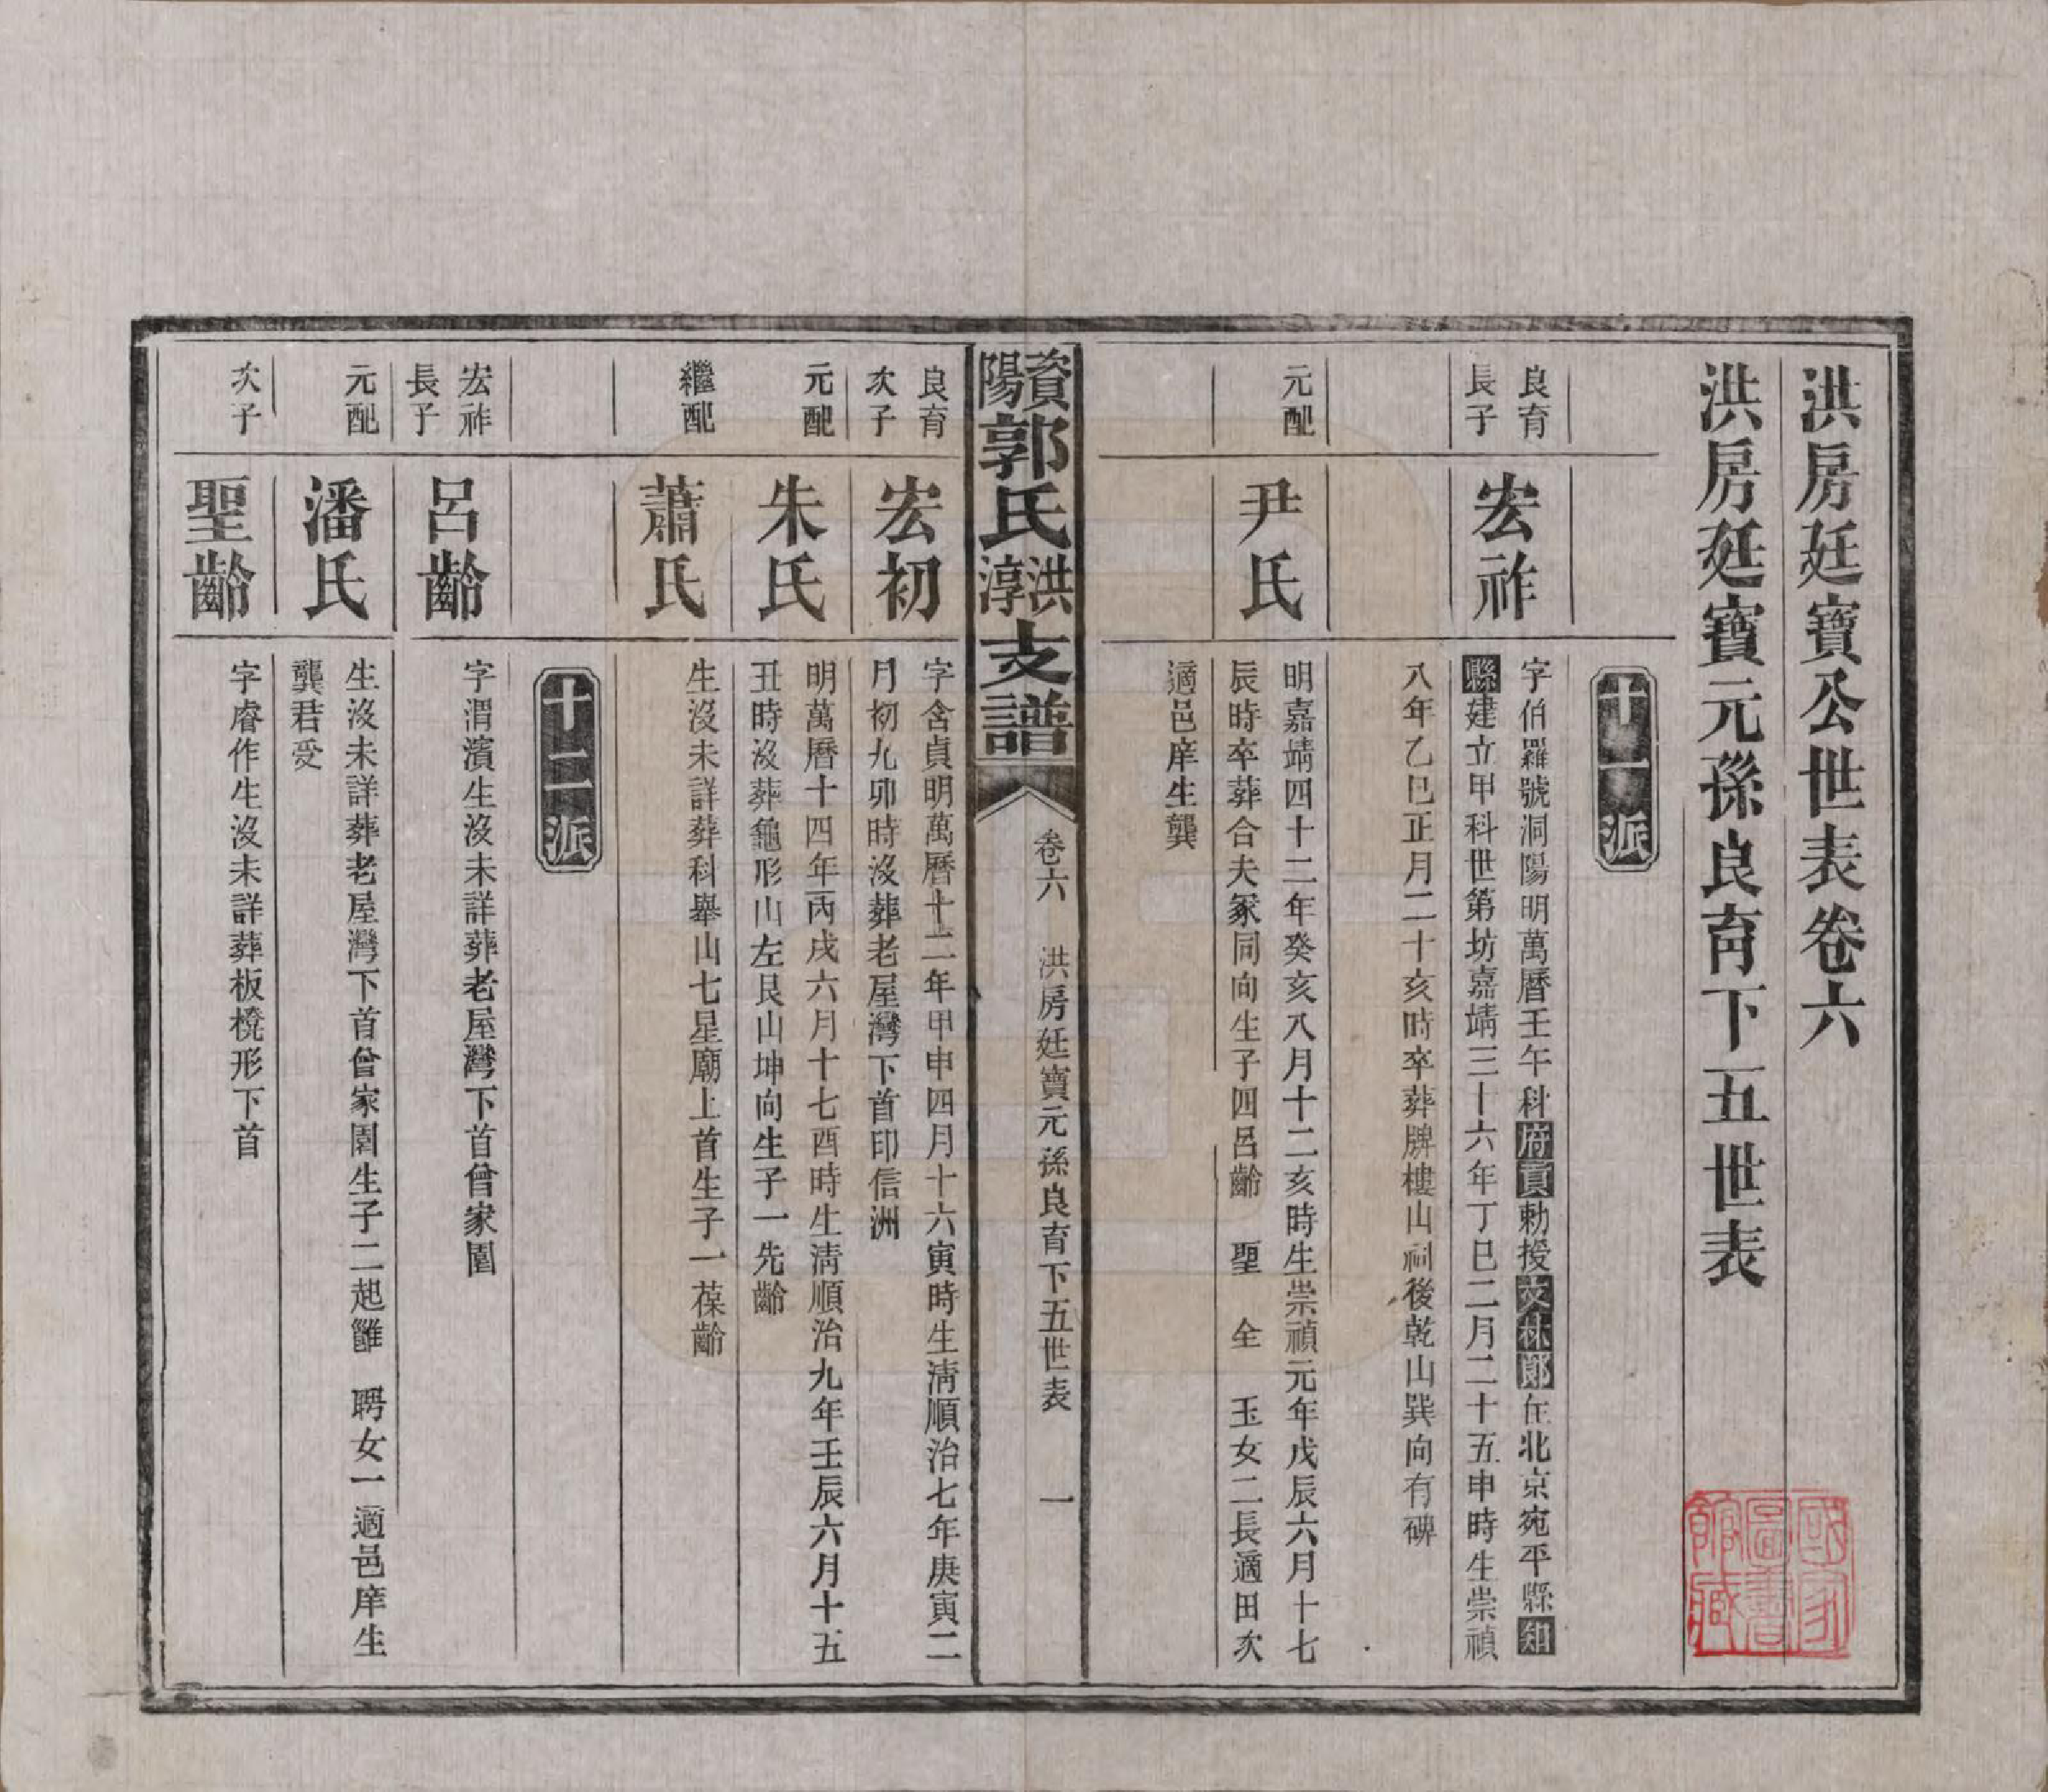 洪房廷寶公世表卷六
洪房廷寶元孫良育下五世表
十一派
良育
長子
宏祚
字伯羅號洞陽明萬曆壬午科府貢勅授文林郎在北京宛平縣知
縣建立甲科世第坊嘉靖三十六年丁巳二月二十五申時生崇禎
八年乙巳正月二十亥時卒葬牌樓山祠後乾山巽向有碑
元配
尹氏
明嘉靖四十二年癸亥八月十二亥時生崇禎元年戊辰六月十七
辰時卒葬合夫冢同向生子四呂齡 聖 全 玉女二長適田次
適邑庠生龔
資陽郭氏洪淳支譜
卷六 洪房廷寶元孫良育下五世表 一
良育
次子
宏初
字含貞明萬曆十二年甲申四月十六寅時生淸順治七年庚寅二
月初九卯時沒葬老屋灣下首印信洲
元配
朱氏
明萬曆十四年丙戌六月十七酉時生淸順治九年壬辰六月十五
丑時沒葬龜形山左艮山坤向生子一先齡
繼配
蕭氏
生沒未詳葬科舉山七星廟上首生子一葆齡
十二派
宏祚
長子
呂齡
字渭濱生沒未詳葬老屋灣下首曾家園
元配
潘氏
生沒未詳葬老屋灣下首曾家園生子二起雒 聘女一適邑庠生
龔君受
次子
聖齡
字睿作生沒未詳葬板櫈形下首
國家圖書館藏